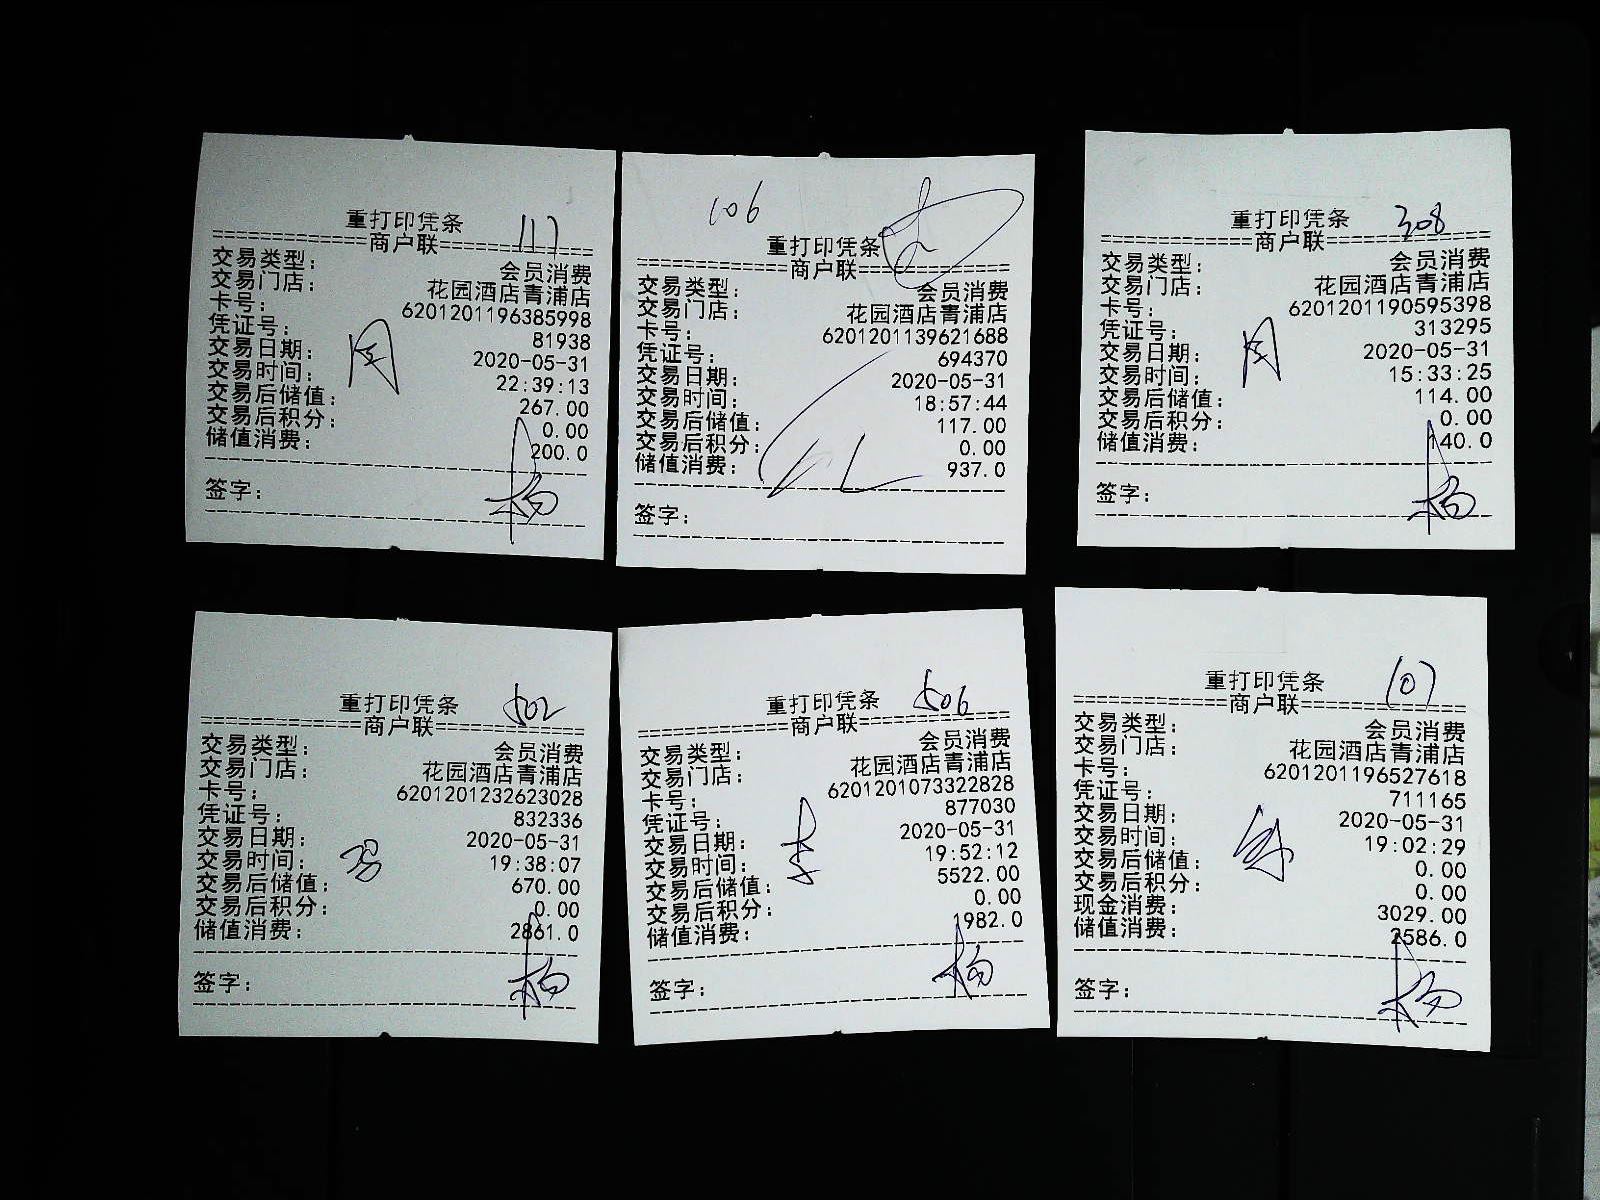 重打印凭条
111
商户联
交易类型： 会员消费
交易门店： 花园酒店青浦店
卡号： 6201201196385998
凭证号： 81938
交易日期： 2020-05-31
交易时间： 22:39:13
交易后储值： 267.00
交易后积分： 0.00
储值消费： 200.0
签字： 杨
106
重打印凭条
商户联
交易类型： 会员消费
交易门店： 花园酒店青浦店
卡号： 6201201139621688
凭证号： 694370
交易日期： 2020-05-31
交易时间： 18:57:44
交易后储值： 117.00
交易后积分： 0.00
储值消费： 937.0
签字：
重打印凭条
308
商户联
交易类型： 会员消费
交易门店： 花园酒店青浦店
卡号： 6201201190595398
凭证号： 313295
交易日期： 2020-05-31
交易时间： 15:33:25
交易后储值： 114.00
交易后积分： 0.00
储值消费：
签字： 杨
重打印凭条
502
商户联
交易类型： 会员消费
交易门店： 花园酒店青浦店
卡号： 6201201232623028
凭证号： 832336
交易日期： 2020-05-31
交易时间： 19:38:07
交易后储值： 670.00
交易后积分： 0.00
储值消费： 2861.0
签字： 杨
重打印凭条
506
商户联
交易类型： 会员消费
交易门店： 花园酒店青浦店
卡号： 6201201073322828
凭证号： 877030
交易日期： 2020-05-31
交易时间： 19:52:12
交易后储值： 5522.00
交易后积分： 0.00
储值消费： 1982.0
李
签字： 杨
重打印凭条
107
商户联
交易类型： 会员消费
交易门店： 花园酒店青浦店
卡号： 6201201196527618
凭证号： 711165
交易日期： 2020-05-31
交易时间： 19:02:29
交易后储值： 0.00
交易后积分： 0.00
现金消费： 3029.00
储值消费： 2586.0
签字： 杨